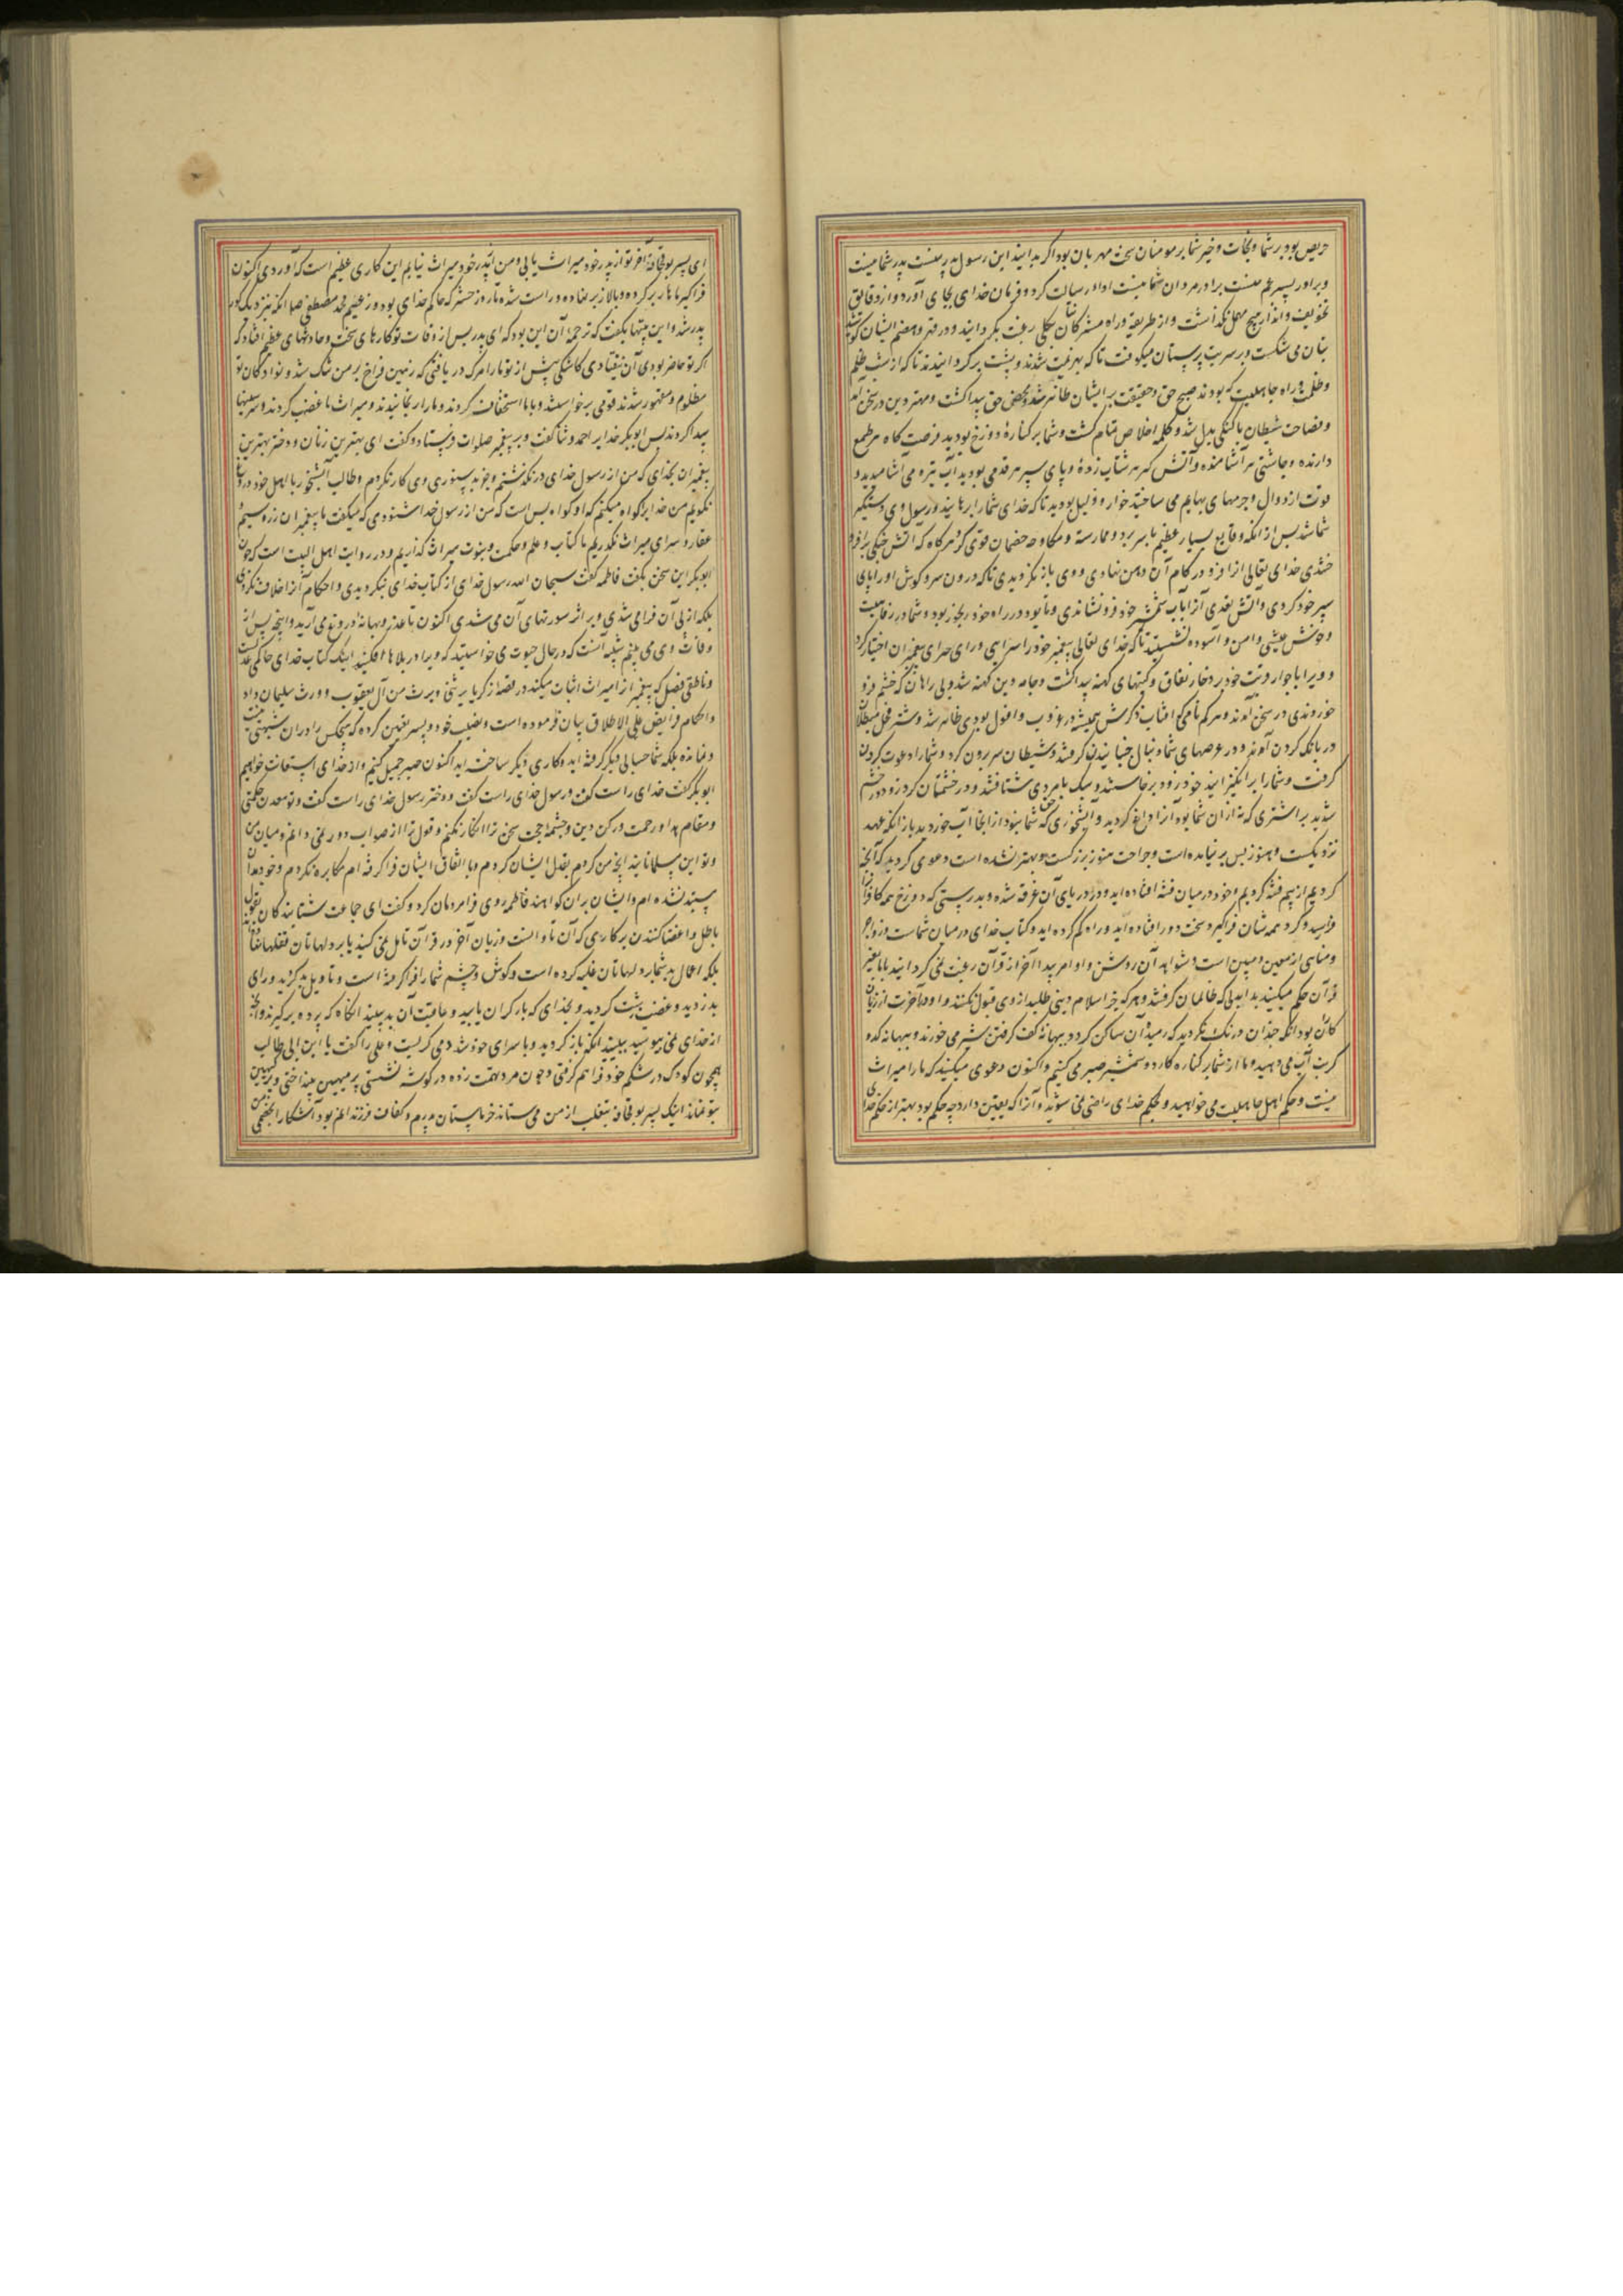 حریص بود بر شما و نجات و خیر شما بر مومنان سخت مهربان بود اگر بدانید این رسول پدر منست پدر شما نیست
و برادر پسر عم منست برادر مردان شما نیست او ادا رسالت کرد و فرمان خدای بجای آورد و از دقایق
تخویف و انذار هیچ مهمل نگذاشت و از طریقه و راه مشرکان بکلی رغبت بگردانید و در قهر و هضم ایشان
بتان می شکست و بر سر بت پرستان میکوفت تا که بهزیمت شدند و پشت برگردانیدند تا که از شب ظلم
و ظلمت و راه جاهلیت که بودند صبح حق و حقیقت بر ایشان ظاهر شد و محض حق پیدا گشت و مهتر دین در سخن آمد
و فصاحت شیطان با گنگی بدل شد و کلمه اخلاص تمام گشت و شما بر کناره دوزخ بودید فرصت گاه هر طمع
دارنده و چاشنی هر آشامنده و آتش گیر هر شتاب زدهٔ و پای سپر هر قدمی بودید آب تیره می آشامیدید و
قوت از دوال و چرمهای بهایم می ساختید خوار و ذلیل بودید تا که خدای شما را برهانید و رسول وی دستگیر
شما شد پس از آنکه وقایع بسیار عظیم با سر برد و ممارسة و مکاوحه خصمان قوی کرد هرگاه که آتش جنگی بر افرو
ختندی خدای تعالی آنرا فرو
سپر خود کردی و آتش بغدی آنرا باب شمشیر خود فرو نشاندی و تا بود در راه خود رنجور بود و شما در رفاهیت
و خوش عیشی و امن و آسوده نشستید تا که خدای تعالی پیغمبر خود را سرایی ورای سرای پیغمبران اختیار کرد
و ویرا با جوار
خوروندی در سخن آمدند و هر کم نامی که آفتاب ذکرش همیشه در غروب و افول بودی ظاهر شد و شتر فحل مبطلان
در بانگ کردن آمد و در عرصهای شما دنبال جنبانیدن گرفت و شیطان سر برون کرد و شما را دعوت کردن
گرفت و شما را برانگیزانید خود زود برخاستید و سبک بامردی شتافتید و در خشمتان کرد زود در خشم
شدید بر اشتری که نه از آن شما بود آنرا داغ کردید و آبشخوری که حق شما نبود از آنجا آب خوردید باز آنکه عهد
نزدیکست و هنوز بس بر نیامده است و جراحت هنوز بزرگست و بهتر نشده است دعوی کردید که آنچه
کردیم از بیم فتنه کردیم و خود در میان فتنه افتاده اید و در دریای آن غرقه شده و بدرستی که دوزخ همه کافران
فرا رسید و گرد همه شان فراگیرد سخت دور افتاده اید و راه گم کرده اید و کتاب خدای در میان شماست و زواجر
و مناهی از معین و مبین است و شواهد آن روشن و اوامر پیدا آخر از قرآن رغبت نمی گردانید یا با بغیر
قرآن حکم میکنید بد ابدلی که ظالمان گرفتند و هر که جز اسلام دینی طلبد از وی قبول نکنند و او در آخرت از زیان
کاران بود آنگه چندان درنگ نکردید که رمیده آن ساکن گردد ببهانه کف گرفتن شیر می خورند و ببهانه کدو
کرت آب می دهید و ما از شما بر کناره کارد و شمشیر صبر می کنیم و اکنون دعوی میکنید که ما را میراث
نیست و حکم اهل جاهلیت می خواهید و بحکم خدای راضی نمی شوید و آنرا که یقین دارد چه حکم بود بهتر از حکم خدای
ای پسر بوقحافه آخر تو از پدر خود میراث یابی و من از پدر خود میراث نیابم این کاری عظیم است که آوردی اکنون
فراگیر مهار بر کرده و پالان بر نهاده و راست شده تا روز حشر که حاکم خدای بود و زعیم محمد مصطفی صلم آنگه بنزدیک گور
پدر شد و این بیتها بگفت که ترجمه آن این بود که ای پدر پس از وفات تو کارهای سخت و حادثهای عظیم افتاد که
اگر تو حاضر بودی آن نیفتادی کاشکی پیش از تو ما را مرگ دریافتی که زمین فراخ بر من تنگ شد و نوادگان تو
مظلوم و مقهور شدند قومی برخواستند و با ما استخفاف کردند و ما را برنجانیدند و میراث ما غصب کردند و سر سینها
پیدا کردند پس ابوبکر خدایرا حمد و ثنا گفت و بر پیغمبر صلوات فرستاد و گفت ای بهترین زنان و دختر بهترین
پیغمبران بخدای که من از رسول خدای در نگذشتم و جز بدستوری وی کار نکردم و طالب آبشخور با اهل خود دروغ
نگوید من خدایرا گواه میکنم که او گواه بس است که من از رسول خدا شنودم که میگفت ما پیغمبران زر و سیم و
عقار و سرای میراث نگذاریم ما کتاب و علم و حکمت و نبوت میراث گذاریم و در روایت اهل البیت است که چون
ابوبکر این سخن بگفت فاطمه گفت سبحان الله رسول خدای از کتاب خدای بنگردیدی و احکام آنرا خلاف نکردی
بلکه از پی آن فرا می شدی و بر اثر سورتهای آن می شدی اکنون با غدر و بهانه دروغ می آرید و اینچه پس از
وفات وی می بینم شبیه آنست که در حال حیوت می خواستید که ویرا در بلاها افکنید اینک کتاب خدای حاکمی عدلست
و ناطقی فصل که پیغمبر انرا میراث اثبات میکند در قصه زکریا یرثنی و یرث من آل یعقوب و ورث سلیمان داود
و احکام فرایض علی الاطلاق بیان فرموده است و نصیب خود و پسر تعیین کرده که هیچکس را در آن شبهتی
و نمانده بلکه شما حسابی دیگر گرفته اید و کاری دیگر ساخته اید اکنون صبر جمیل کنیم و از خدای استعانت خواهیم
ابوبکر گفت خدای راست گفت و رسول خدای راست گفت و دختر رسول خدای راست گفت و تو معدن حکمتی
و مقام هدا و رحمت و رکن دین و چشمه حجت سخن ترا انکار نکنم و قول ترا از صواب دور نمی دانم و میان من
و تو این مسلمانانند اینچه من کردم بقول ایشان کردم و با اتفاق ایشان فرا گرفته ام مکابره نکردم و خود بدان
مستبد نشده ام و ایشان بر آن گواهند فاطمه روی فرا مردمان کرد و گفت ای جماعت شتابندگان بقول
باطل و اغضا کنندن بر کاری که آن تاوانست و زیان آخر در قرآن تامل نمی کنید یا بر دلهاتان قفلهاست
بلکه اعمال بد شما بر دلهاتان غلبه کرده است و گوش و چشم شما را فرا گرفته است و تاویل بد کردید و رای
بد زدید و عوض زشت کردید و بخدای که بار گران یابید و عاقبت آن بد بینید آنگاه که پرده برگیرند و آنچه
از خدای نمی بیوسید ببینید آنگه باز گردید و با سرای خود شد و می گریست و علی را گفت یا ابن ابی طالب
همچون کودک در شکم خود فراهم گرفتی و چون مرد تهمت زده در گوشه نشستی پر مهین بینداختی و پر کهین
بتو نماند اینک پسر بوقحافه بتغلب از من می ستاند خرماستان پدرم و کفاف فرزندانم بود آشکارا خصمی